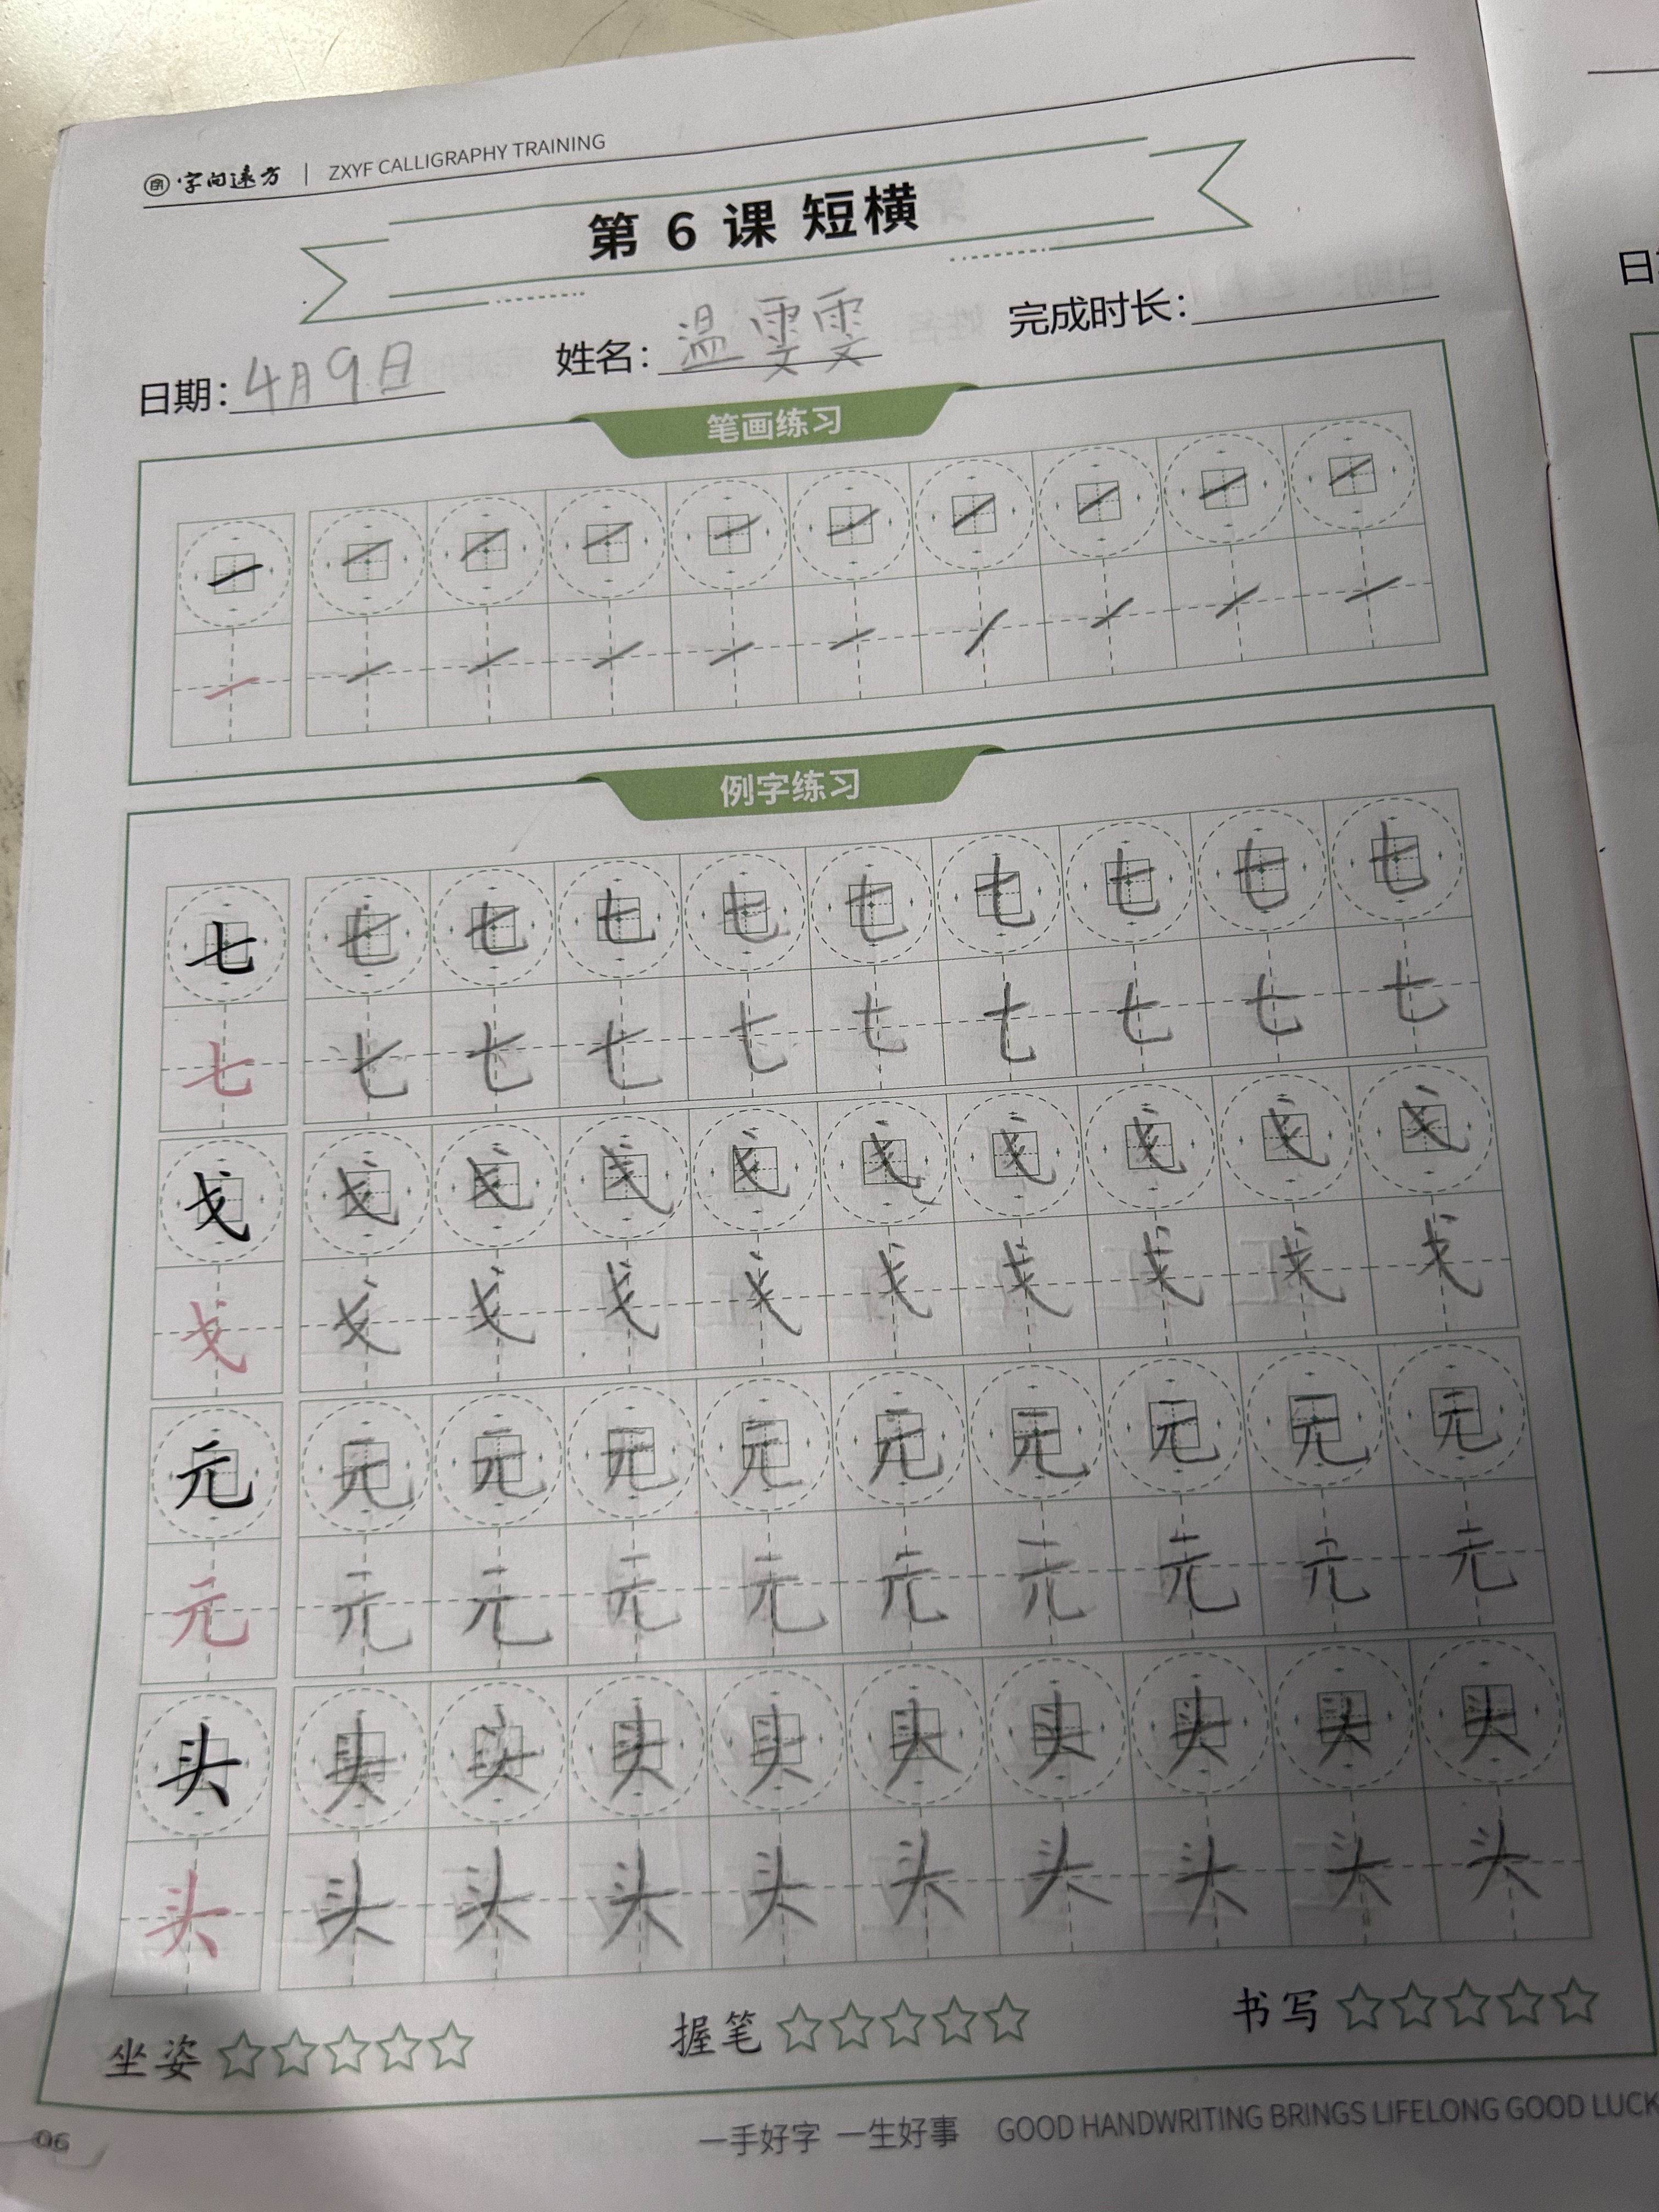 字间远方 | ZXYF CALLIGRAPHY TRAINING
第 6 课 短横
日期：4月9日 姓名：温雯雯 完成时长：
笔画练习
一 一 一 一 一 一 一 一 一 一
一 一 一 一 一 一 一 一 一 一
例字练习
七 七 七 七 七 七 七 七 七 七
七 七 七 七 七 七 七 七 七 七
戈 戈 戈 戈 戈 戈 戈 戈 戈 戈
戈 戈 戈 戈 戈 戈 戈 戈 戈 戈
元 元 元 元 元 元 元 元 元 元
元 元 元 元 元 元 元 元 元 元
头 头 头 头 头 头 头 头 头 头
头 头 头 头 头 头 头 头 头 头
坐姿 ☆☆☆☆☆ 握笔 ☆☆☆☆☆ 书写 ☆☆☆☆☆
06 一手好字 一生好事 GOOD HANDWRITING BRINGS LIFELONG GOOD LUCK